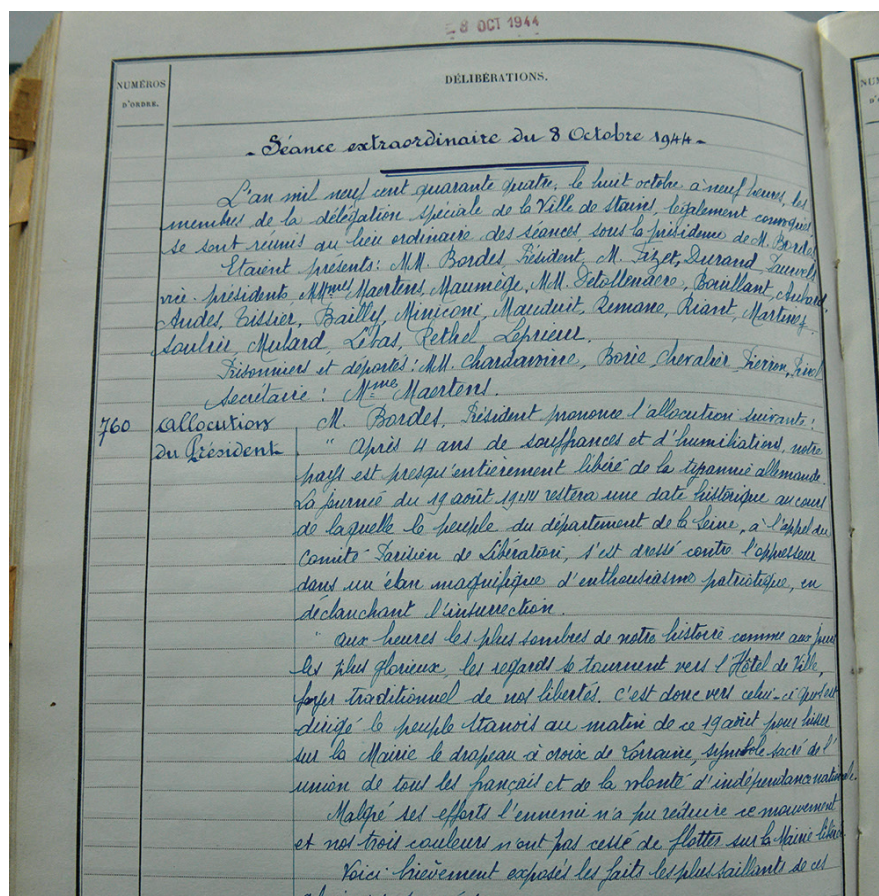 8 OCT 1944
NUMÉROS
D'ORDRE.
DÉLIBÉRATIONS.
- Séance extraordinaire du 8 Octobre 1944 -
L'an mil neuf cent quarante quatre, le huit octobre à neuf heures, les
membres de la délégation spéciale de la Ville de Stains, légalement convoqués,
se sont réunis au lieu ordinaire des séances, sous la présidence de M. Bordes
Etaient présents: MM. Bordes, Président, M. Fizet, Durand,
vice-présidents, MMmes Maertens, Maumège, MM. Detollenaere, Bouillant, Aubard,
Andes, Tissier, Bailly, Miniconi, Mauduit, Remane, Riant, Martinez,
Soulrié, Mulard, Lebas, Rethel, Leprieur.
Prisonniers et déportés: MM. Chardavoine, Borie, Chevalier, Pierron,
Secrétaire: Mme Maertens.
760 Allocution M. Bordes, Président prononce l'allocution suivante:
du Président. " Après 4 ans de souffrances et d'humiliations, notre
pays est presqu'entièrement libéré de la tyrannie allemande.
La journée du 19 août 1944 restera une date historique au cours
de laquelle le peuple du département de la Seine, à l'appel du
Comité Parisien de Libération, s'est dressé contre l'oppresseur
dans un élan magnifique d'enthousiasme patriotique, en
déclanchant l'insurrection.
" Aux heures les plus sombres de notre histoire comme aux jours
les plus glorieux, les regards se tournent vers l'Hôtel de Ville,
foyer traditionnel de nos libertés. C'est donc vers celui-ci que s'est
dirigé le peuple Stanois au matin de ce 19 août pour hisser
sur la Mairie le drapeau à croix de Lorraine, symbole sacré de l'
union de tous les français et de la volonté d'indépendance nationale.
Malgré ses efforts l'ennemi n'a pu réduire ce mouvement
et nos trois couleurs n'ont pas cessé de flotter sur la Mairie libérée.
Voici brièvement exposés les faits les plus saillants de ces